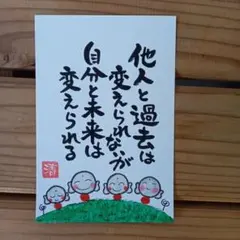 他人と過去は
変えられないが
自分と未来は
変えられる